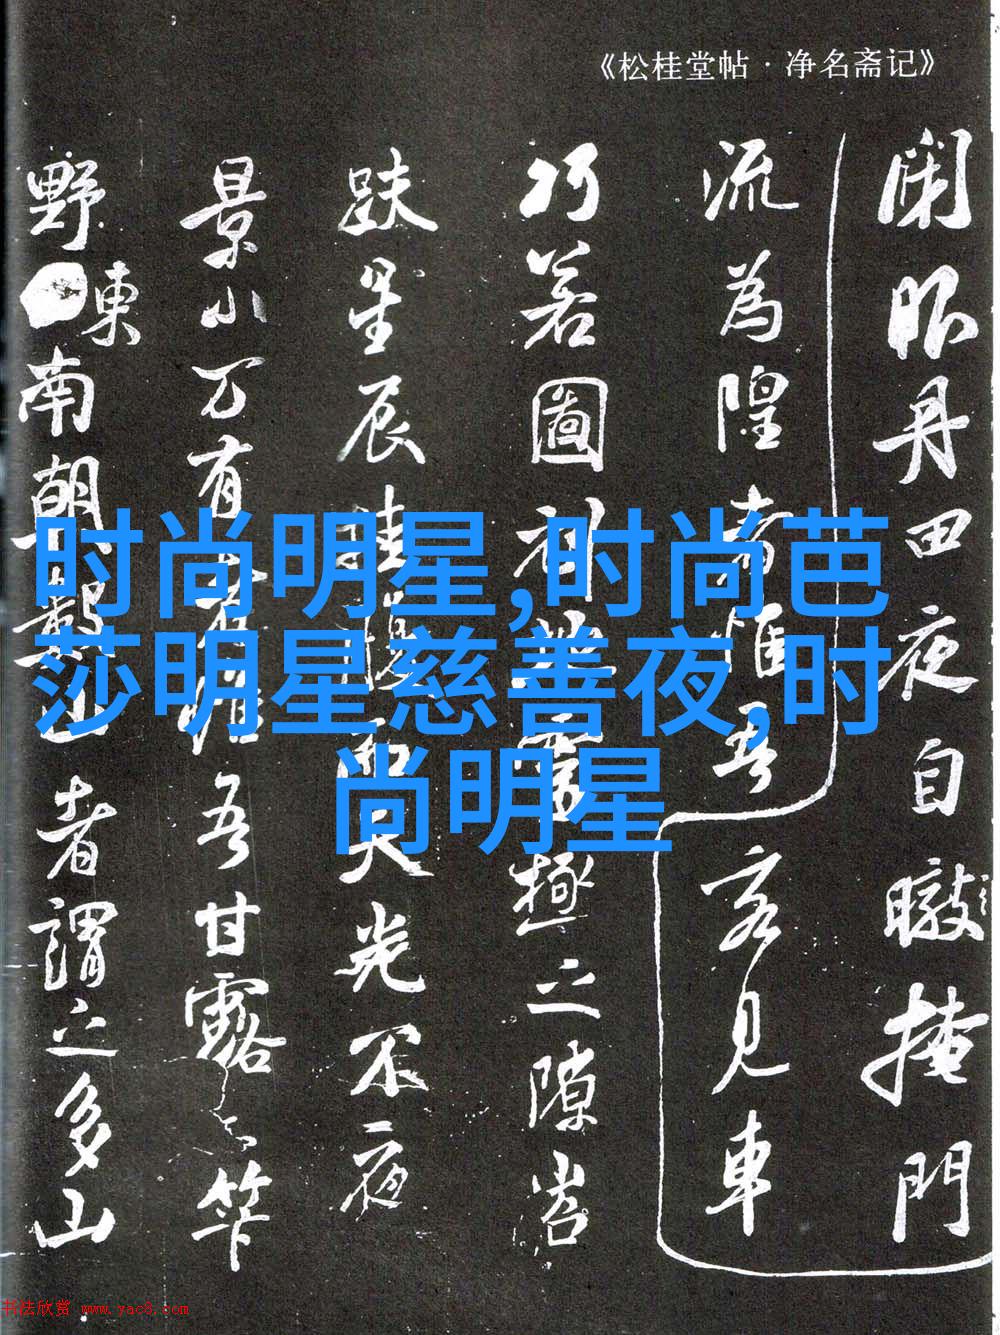 《松桂堂帖·净名斋记》
闭眼丹田夜自暾掩門
流為隍者惟吾客見車
巧若圖刻
極之隙岩
趺星辰
天光不夜
景小万有
吾甘露笮
野東
南朝數
者謂之多山
时尚明星,时尚芭
莎明星慈善夜,时
尚明星
书法欣赏 www.yac8.com